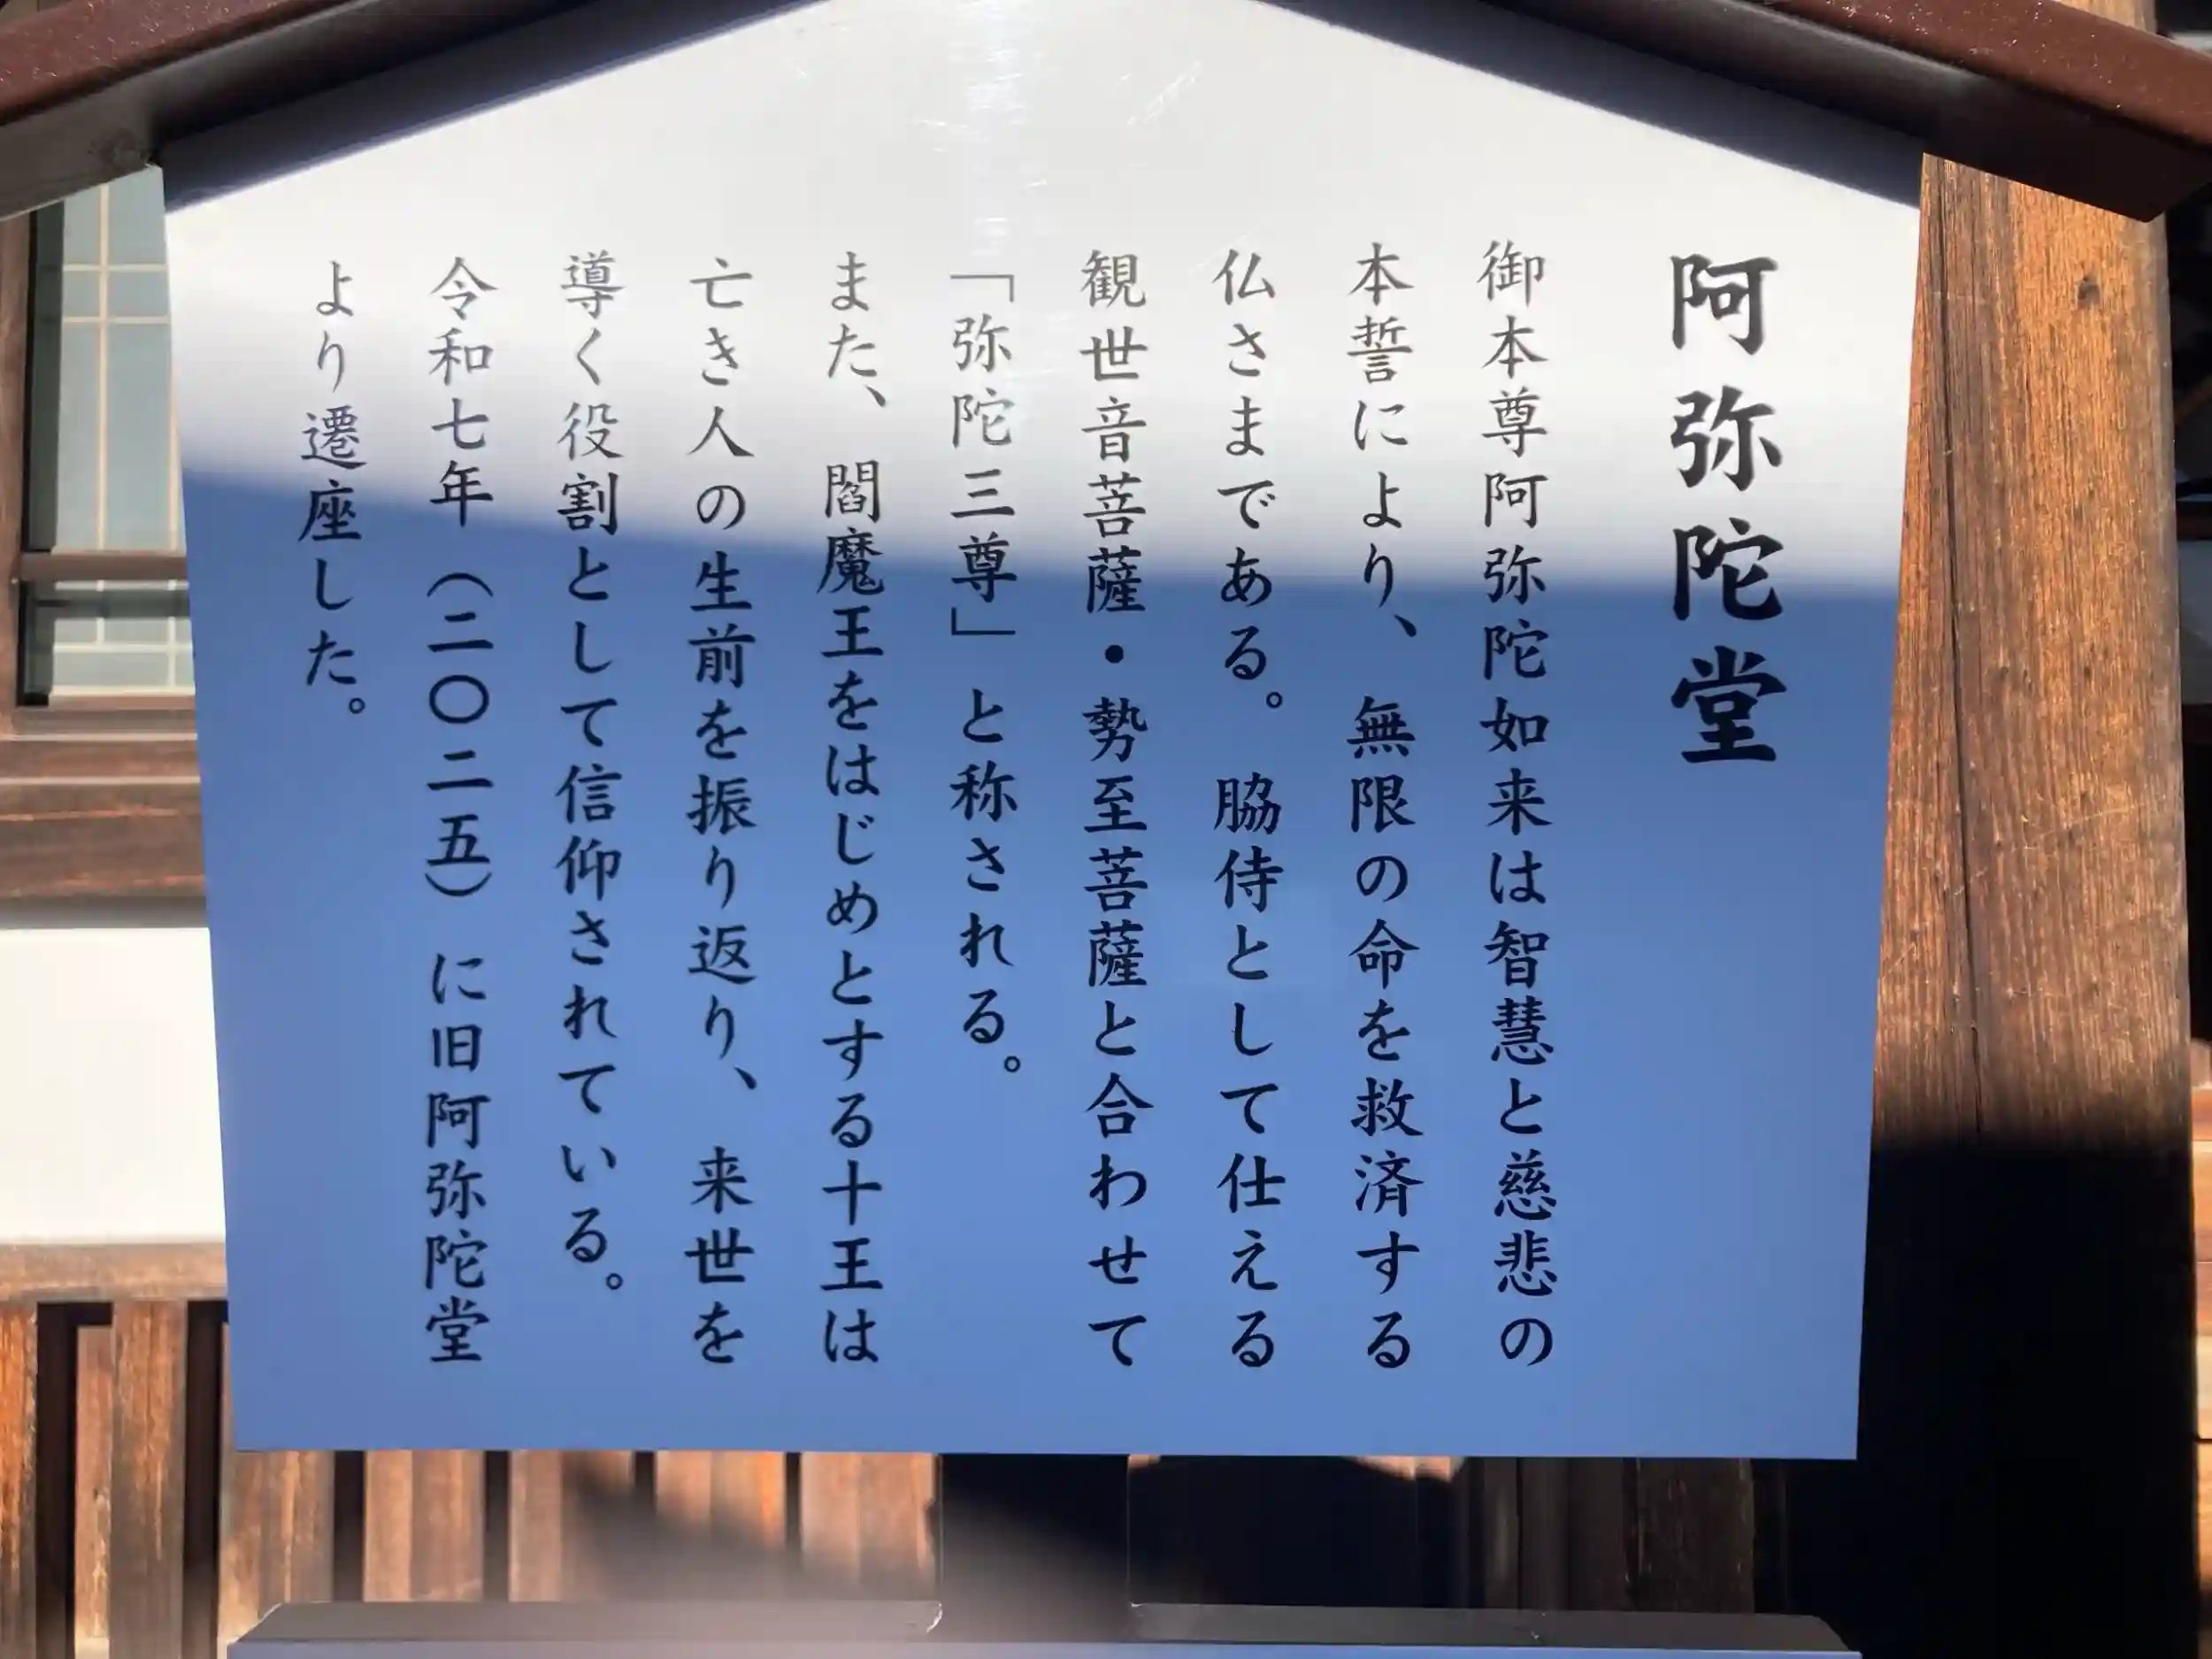 阿弥陀堂
御本尊阿弥陀如来は智慧と慈悲の
本誓により、無限の命を救済する
仏さまである。脇侍として仕える
観世音菩薩・勢至菩薩と合わせて
「弥陀三尊」と称される。
また、閻魔王をはじめとする十王は
亡き人の生前を振り返り、来世を
導く役割として信仰されている。
令和七年（二〇二五）に旧阿弥陀堂
より遷座した。